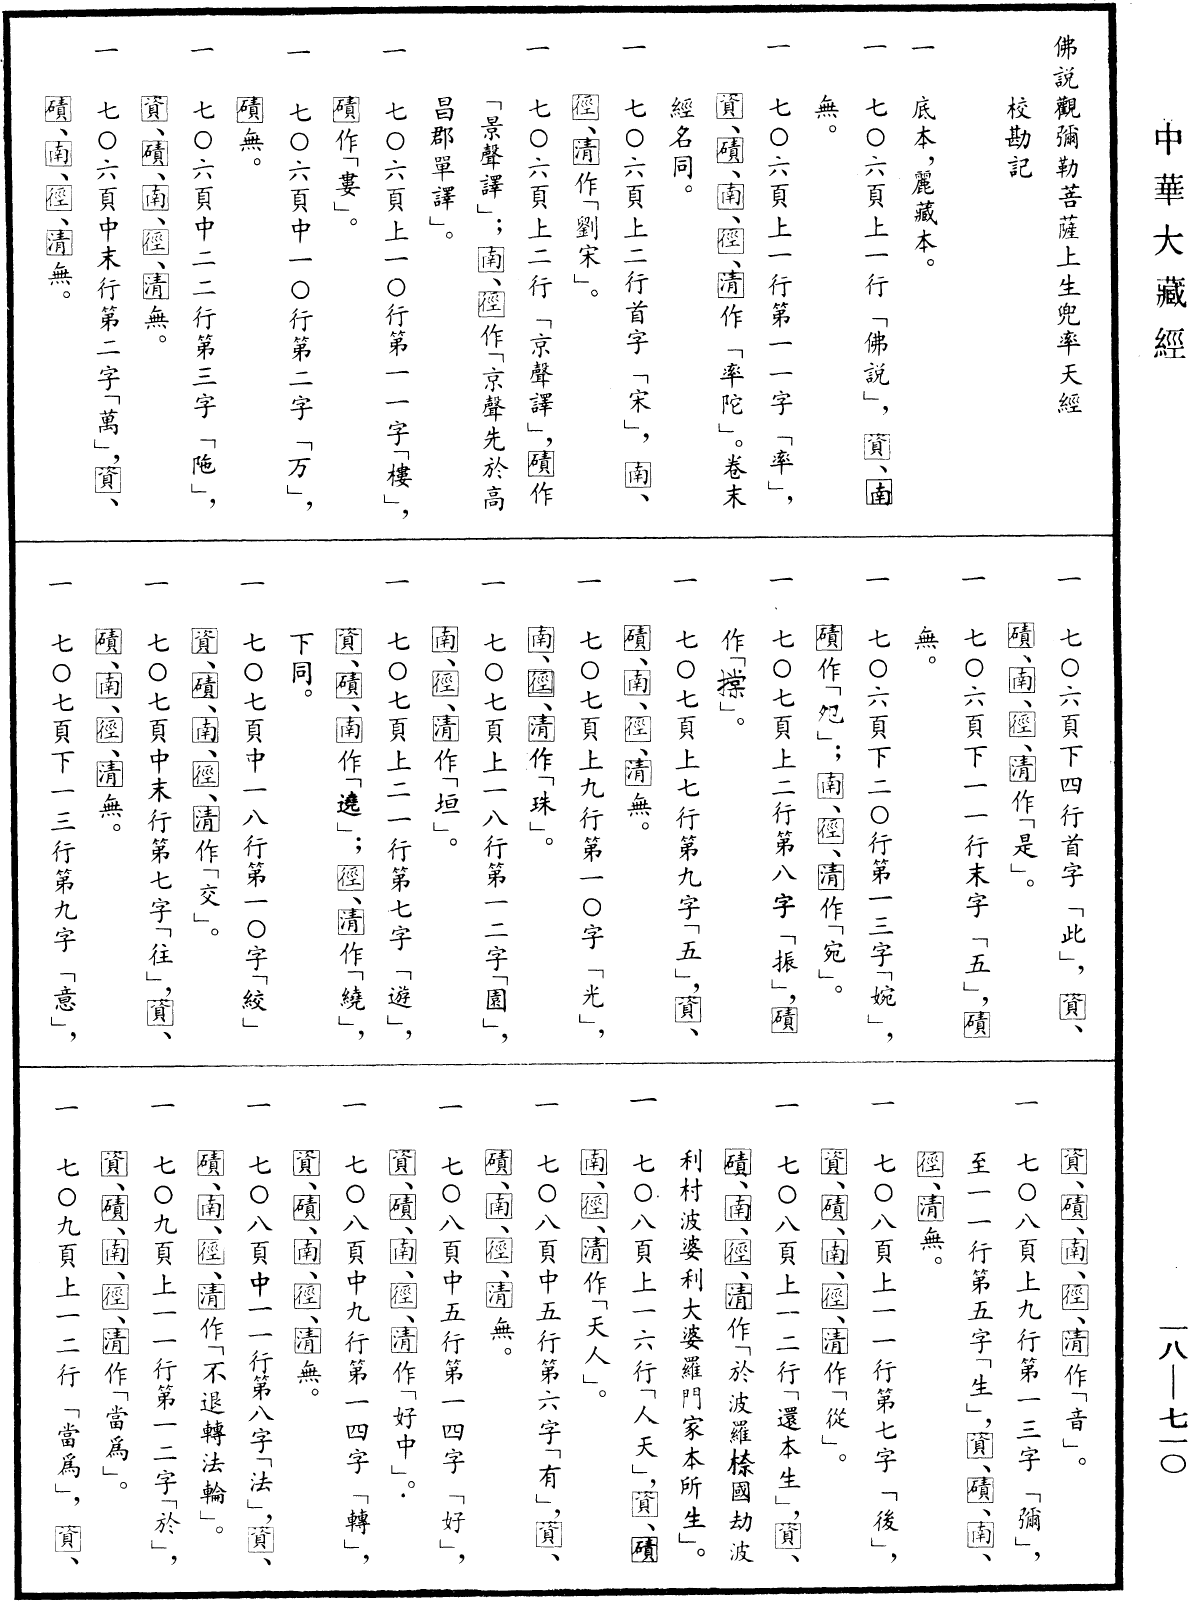 中華大藏經
一八—七一〇
佛説觀彌勒菩薩上生兜率天經
校勘記
一 底本，麗藏本。
一 七〇六頁上一行「佛説」，資、南
無。
一 七〇六頁上一行第一一字「率」，
資、磧、南、徑、清作「率陀」。卷末
經名同。
一 七〇六頁上二行首字「宋」，南、
徑、清作「劉宋」。
一 七〇六頁上二行「京聲譯」，磧作
「景聲譯」；南、徑作「京聲先於高
昌郡單譯」。
一 七〇六頁上一〇行第一一字「樓」，
磧作「婁」。
一 七〇六頁中一〇行第二字「万」，
磧無。
一 七〇六頁中二二行第三字「陁」，
資、磧、南、徑、清無。
一 七〇六頁中末行第二字「萬」，資、
磧、南、徑、清無。
一 七〇六頁下四行首字「此」，資、
磧、南、徑、清作「是」。
一 七〇六頁下一一行末字「五」，磧
無。
一 七〇六頁下二〇行第一三字「婉」，
磧作「夗」；南、徑、清作「宛」。
一 七〇七頁上二行第八字「振」，磧
作「㯑」。
一 七〇七頁上七行第九字「五」，資、
磧、南、徑、清無。
一 七〇七頁上九行第一〇字「光」，
南、徑、清作「珠」。
一 七〇七頁上一八行第一二字「園」，
南、徑、清作「垣」。
一 七〇七頁上二一行第七字「遊」，
資、磧、南作「遶」；徑、清作「繞」，
下同。
一 七〇七頁中一八行第一〇字「絞」
資、磧、南、徑、清作「交」。
一 七〇七頁中末行第七字「往」，資、
磧、南、徑、清無。
一 七〇七頁下一三行第九字「意」，
資、磧、南、徑、清作「音」。
一 七〇八頁上九行第一三字「彌」，
至一一行第五字「生」，資、磧、南、
徑、清無。
一 七〇八頁上一一行第七字「後」，
資、磧、南、徑、清作「從」。
一 七〇八頁上一二行「還本生」，資、
磧、南、徑、清作「於波羅㮈國劫波
利村波婆利大婆羅門家本所生」。
一 七〇八頁上一六行「人天」，資、磧
南、徑、清作「天人」。
一 七〇八頁中五行第六字「有」，資、
磧、南、徑、清無。
一 七〇八頁中五行第一四字「好」，
資、磧、南、徑、清作「好中」。
一 七〇八頁中九行第一四字「轉」，
資、磧、南、徑、清無。
一 七〇八頁中一一行第八字「法」，資、
磧、南、徑、清作「不退轉法輪」。
一 七〇九頁上一一行第一二字「於」，
資、磧、南、徑、清作「當爲」。
一 七〇九頁上一二行「當爲」，資、